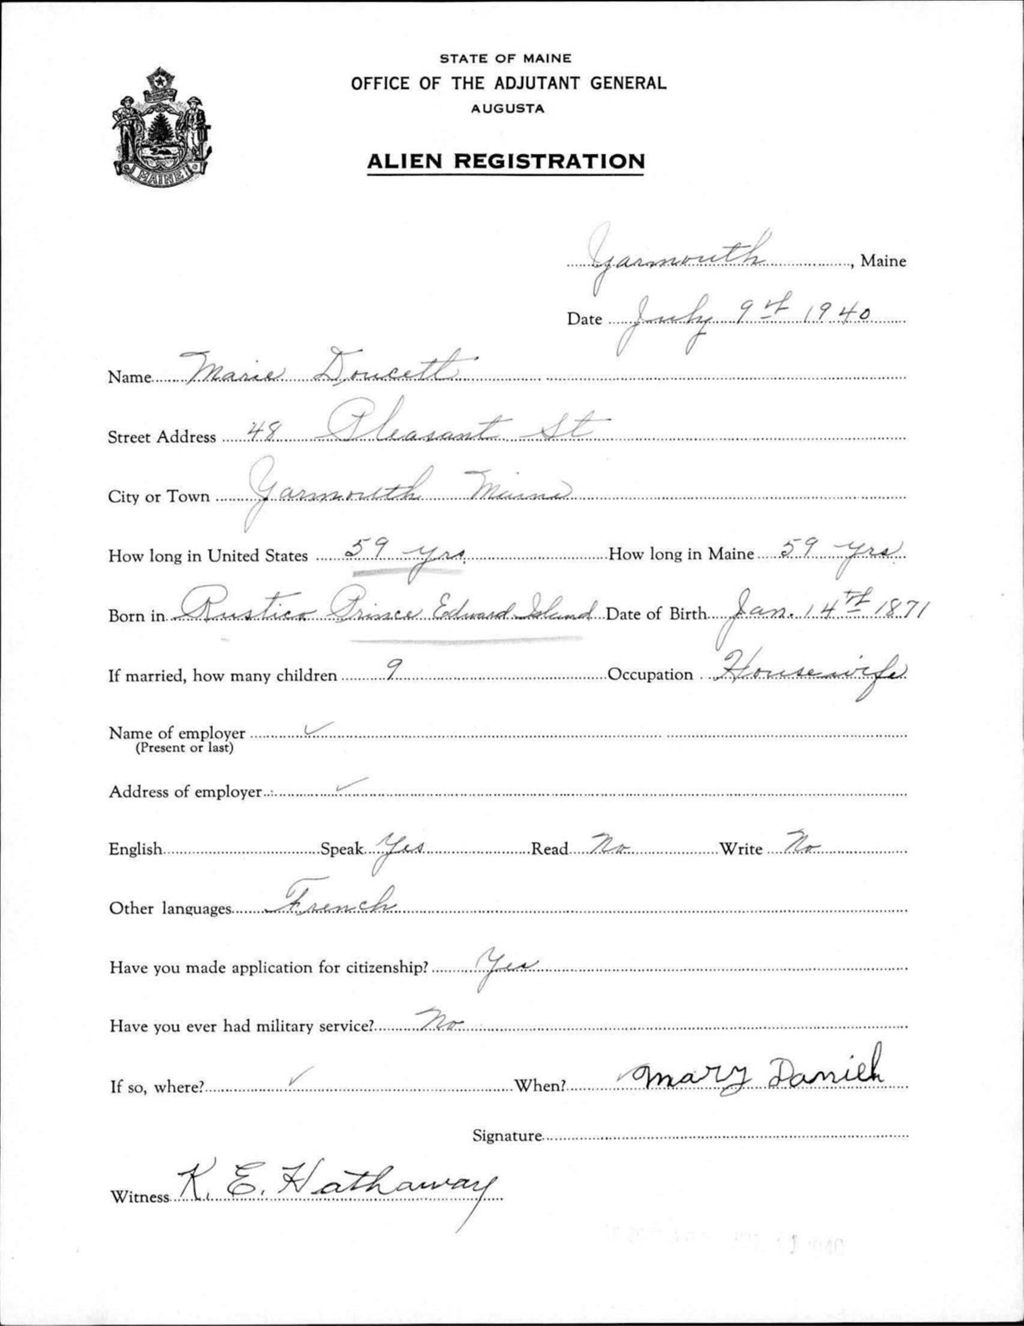 STATE OF MAINE
OFFICE OF THE ADJUTANT GENERAL
AUGUSTA
MAINE
ALIEN REGISTRATION
Yarmouth, Maine
Date July 9th 1940
Name Marie Doucett
Street Address 48 Pleasant St
City or Town Yarmouth Maine
How long in United States 59 yrs. How long in Maine 59 yrs
Born in Rustico Prince Edward Island Date of Birth Jan. 14th 1871
If married, how many children 9 Occupation Housewife
Name of employer ✓
(Present or last)
Address of employer ✓
English Speak Yes Read No Write No
Other languages French
Have you made application for citizenship? Yes
Have you ever had military service? No
If so, where? ✓ When? ✓ Mary
Signature
Witness K. E. Hathaway